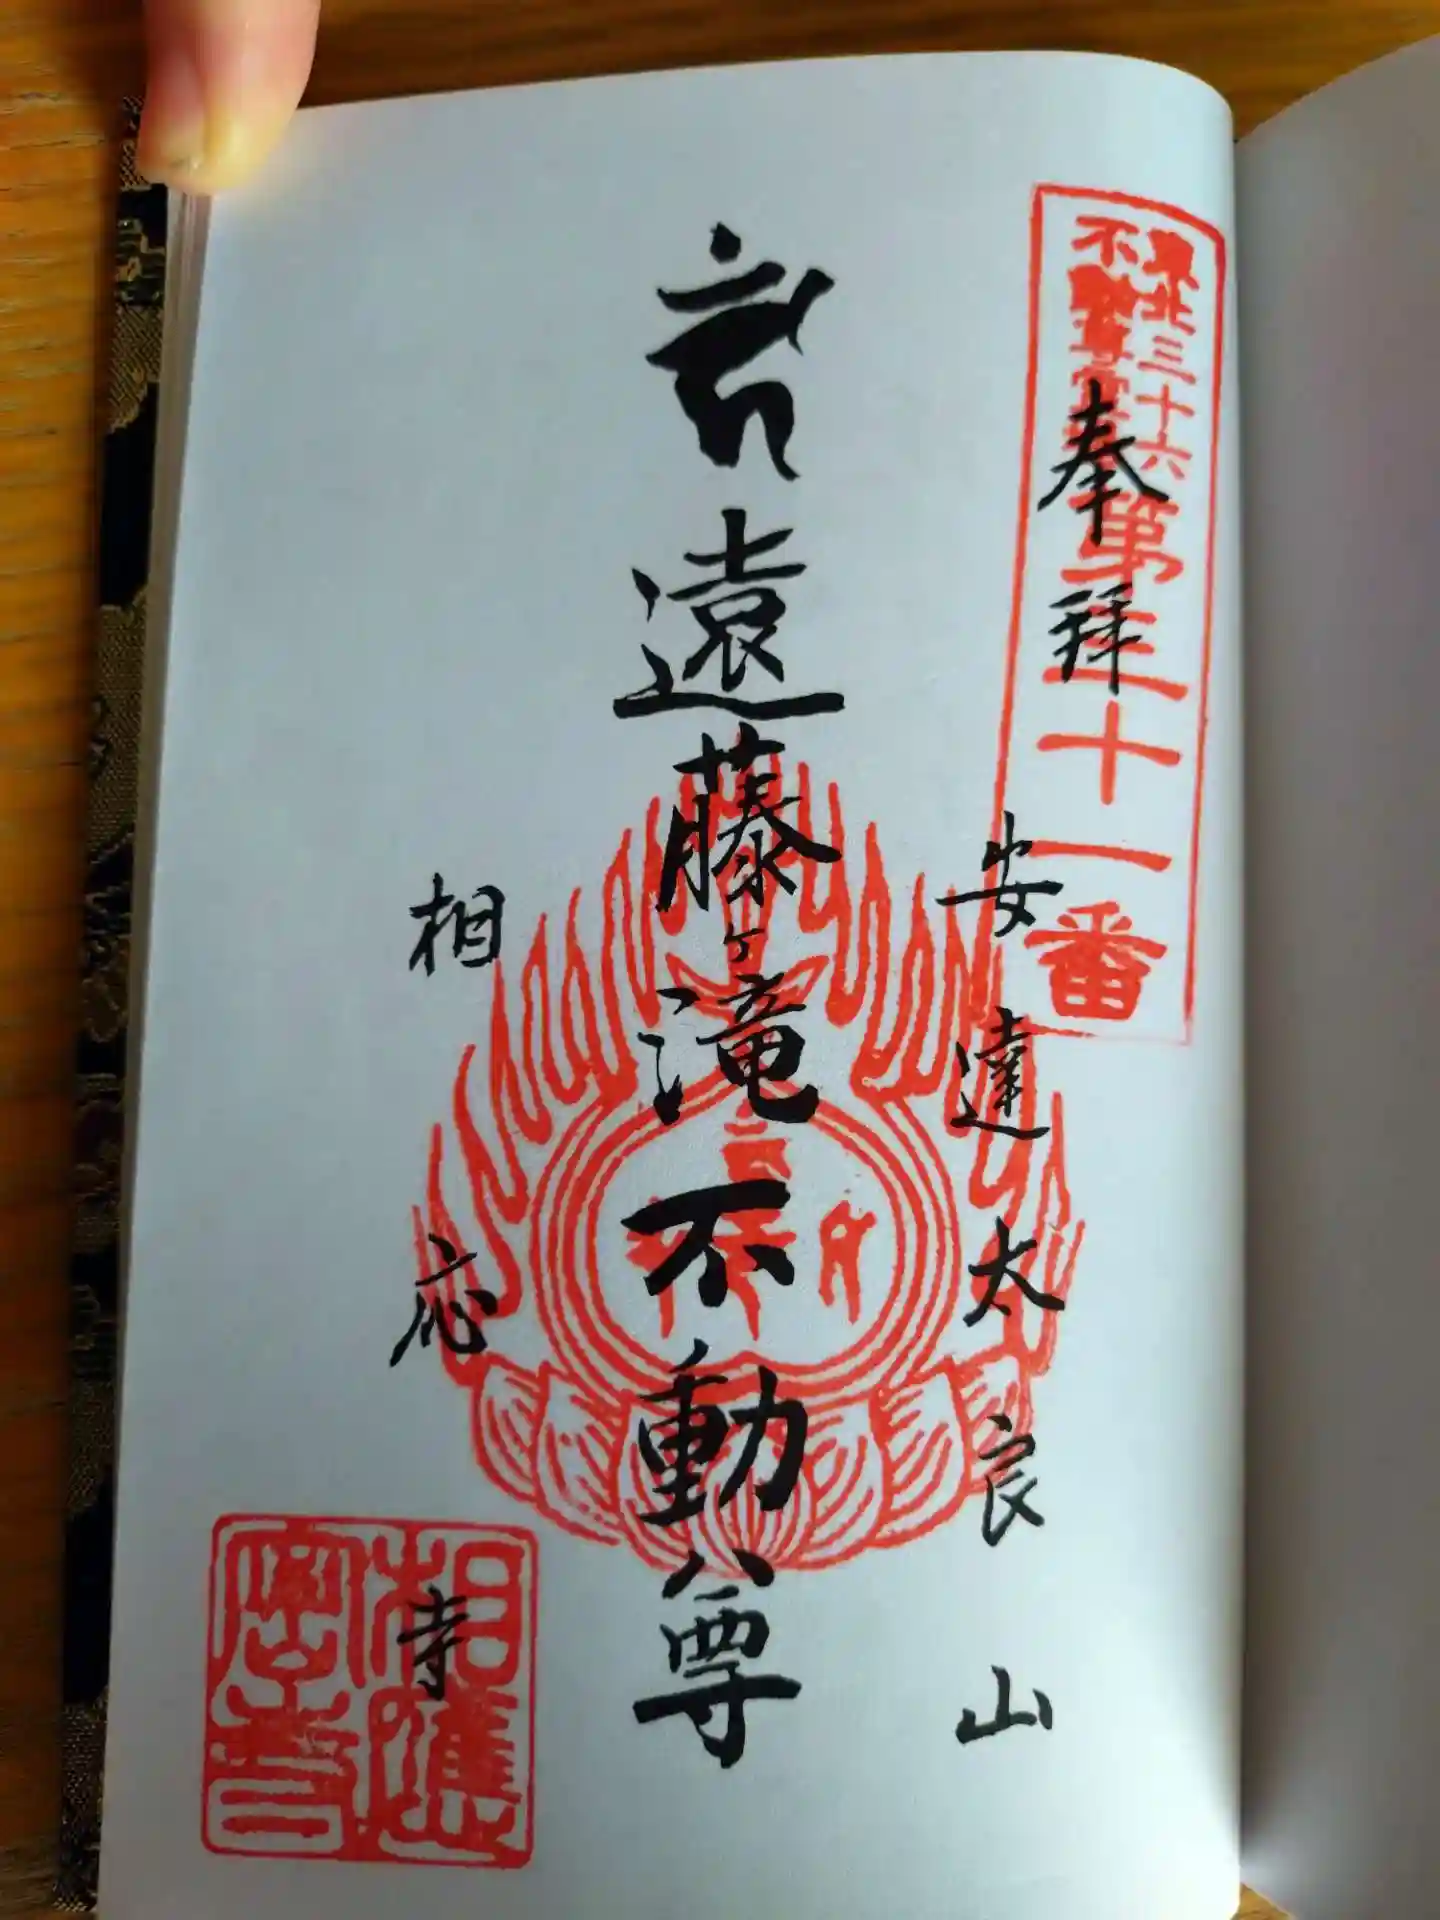 東北三十六
不動尊霊場
第三十一番
奉拝
安達太良山
遠藤ヶ滝不動尊
相応寺
相應
密寺